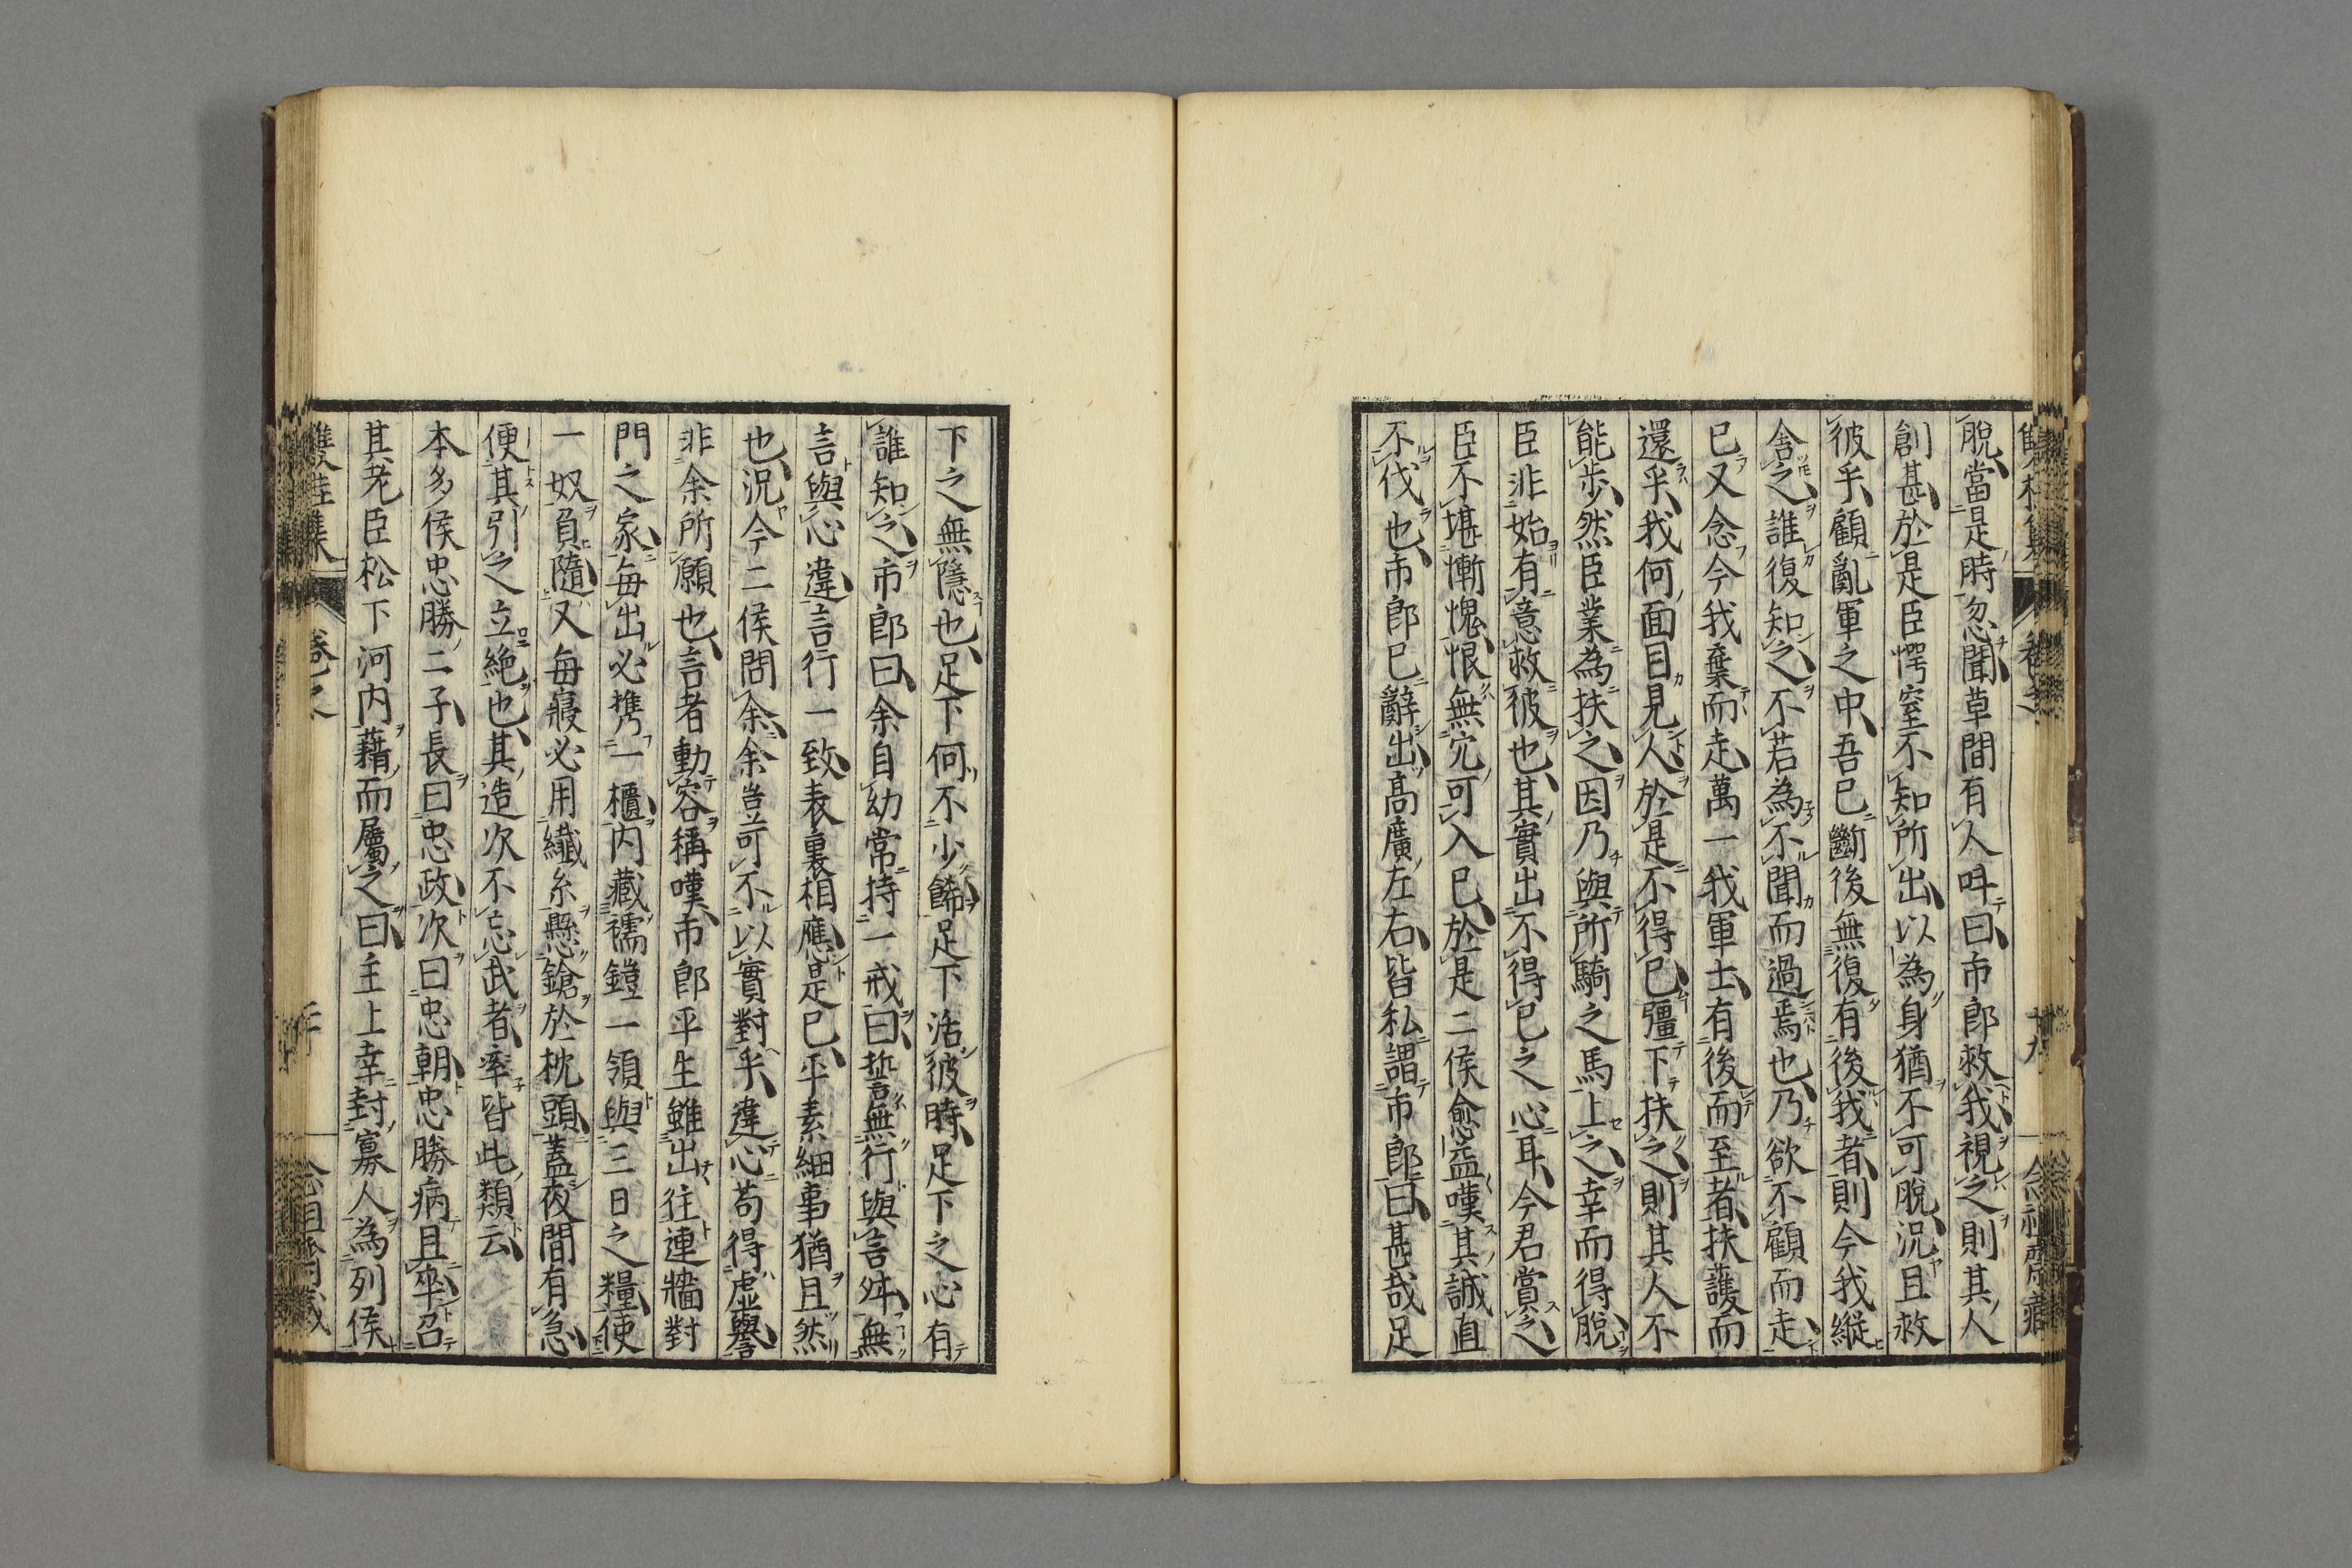 脫當是時忽聞草間有人呌曰市郎救我視之則其人
創甚於是臣愕窒不知所出以為身猶不可脫況且救
彼乎顧亂軍之中吾已斷後無復有後我者則今我縱
舍之誰復知之不若為不聞而過焉也乃欲不顧而走
已又念今我棄而走萬一我軍士有後而至者扶護而
還乎我何面目見人於是不得已彊下扶之則其人不
能步然臣業為扶之因乃與所騎之馬上之幸而得脫
臣非始有意救彼也其實出不得已之心耳今君賞之
臣不堪慚愧恨無穴可入已於是二侯愈益嘆其誠直
不伐也市郎已辭出高廣左右皆私謂市郎曰甚哉足
下之無隱也足下何不少餙足下活彼時足下之心有
誰知之市郎曰余自幼常持一戒曰誓無行與言舛無
言與心違言行一致表裏相應是已平素細事猶且然
也況今二侯問余余豈可不以實對乎違心苟得虛譽
非余所願也言者動容稱嘆市郎平生雖出往連牆對
門之家每出必携一櫃內藏襦鎧一領與三日之糧使
一奴負隨又每寢必用纖糸懸鎗於枕頭蓋夜間有急
便其引之立絕也其造次不忘武者率皆此類云
本多侯忠勝二子長曰忠政次曰忠朝忠勝病且卒召
其老臣松下河内藉而屬之曰主上幸封寡人為列侯
雙桂集